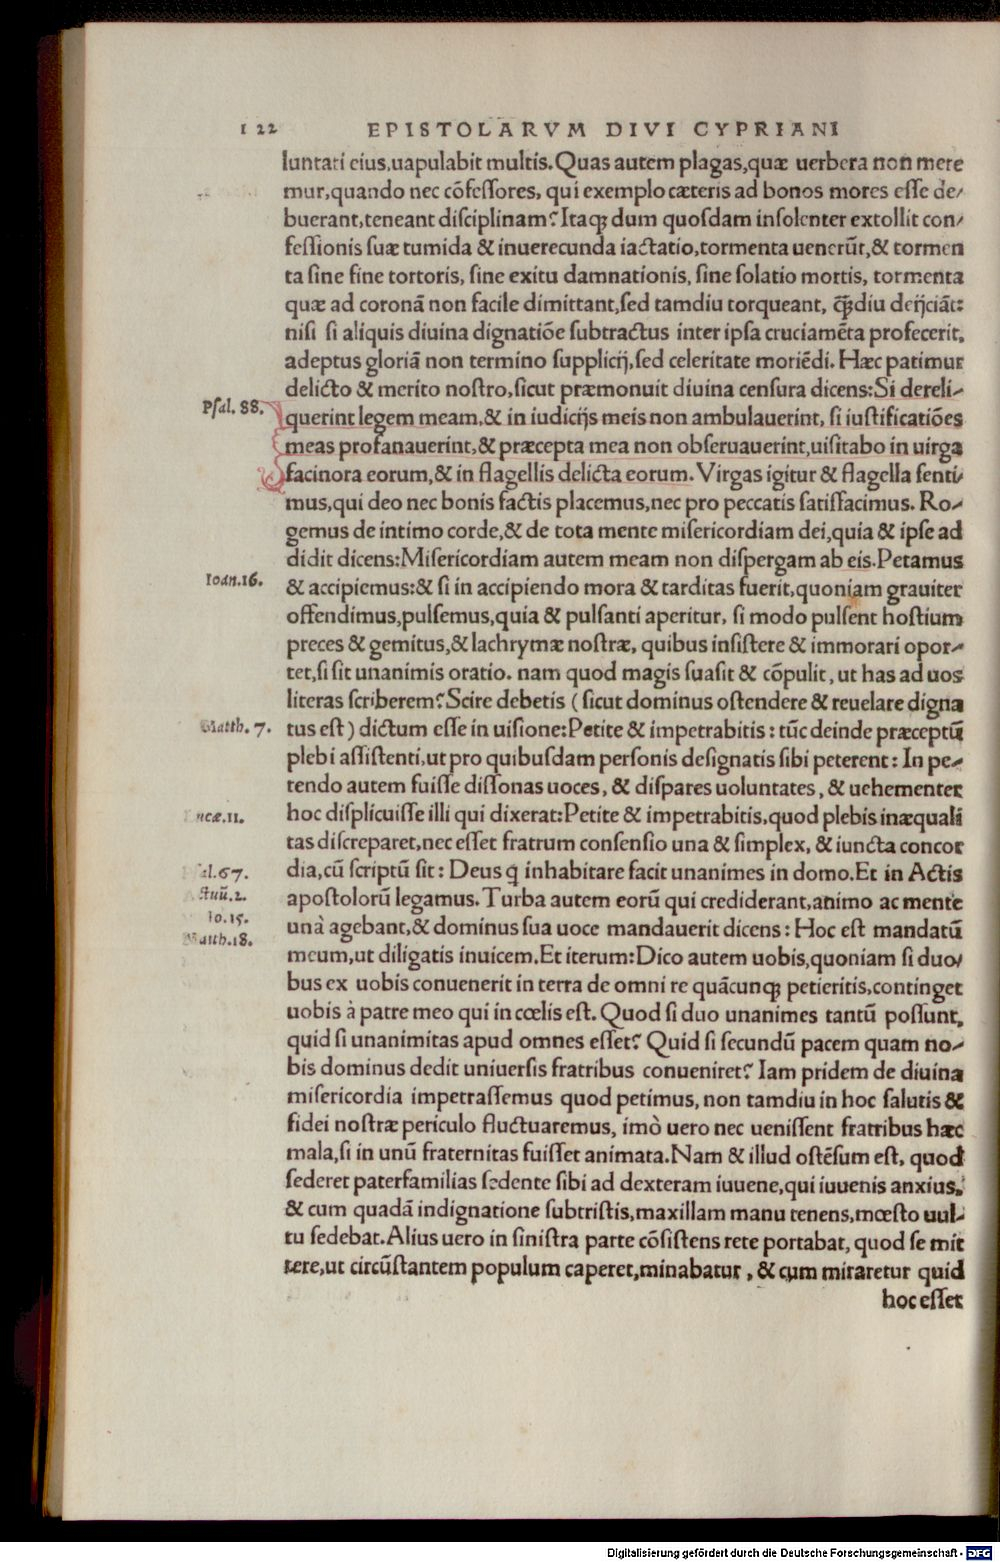 122 EPISTOLARVM DIVI CYPRIANI
luntati eius,uapulabit multis.Quas autem plagas,quæ uerbera non mere
mur,quando nec cõfessores, qui exemplo cæteris ad bonos mores esse de/
buerant,teneant disciplinam? Itaqꝫ dum quosdam insolenter extollit con/
fessionis suæ tumida & inuerecunda iactatio,tormenta uenerũt,& tormen
ta sine fine tortoris, sine exitu damnationis, sine solatio mortis, tormenta
quæ ad coronã non facile dimittant,sed tamdiu torqueant, q̃ꝫdiu deijciãt:
nisi si aliquis diuina dignatiõe subtractus inter ipsa cruciamẽta profecerit,
adeptus gloriã non termino supplicij,sed celeritate moriẽdi. Hæc patimur
delicto & merito nostro,sicut præmonuit diuina censura dicens:Si dereli/
Psal. 88.
querint legem meam,& in iudicijs meis non ambulauerint, si iustificatiões
meas profanauerint,& præcepta mea non obseruauerint,uisitabo in uirga
facinora eorum,& in flagellis delicta eorum. Virgas igitur & flagella senti/
mus,qui deo nec bonis factis placemus,nec pro peccatis satisfacimus. Ro/
gemus de intimo corde,& de tota mente misericordiam dei,quia & ipse ad
didit dicens:Misericordiam autem meam non dispergam ab eis.Petamus
Ioan.16.
& accipiemus:& si in accipiendo mora & tarditas fuerit,quoniam grauiter
offendimus,pulsemus,quia & pulsanti aperitur, si modo pulsent hostium
preces & gemitus,& lachrymæ nostræ, quibus insistere & immorari opor/
tet,si sit unanimis oratio. nam quod magis suasit & cõpulit, ut has ad uos
literas scriberem? Scire debetis ( sicut dominus ostendere & reuelare digna
Matth. 7.
tus est ) dictum esse in uisione:Petite & impetrabitis : tũc deinde præceptũ
plebi assistenti,ut pro quibusdam personis designatis sibi peterent : In pe/
tendo autem fuisse dissonas uoces, & dispares uoluntates, & uehementer
Lucæ.11.
hoc displicuisse illi qui dixerat:Petite & impetrabitis,quod plebis inæquali
tas discreparet,nec esset fratrum consensio una & simplex, & iuncta concor
Psal.67.
dia,cũ scriptũ sit : Deus q̃ inhabitare facit unanimes in domo.Et in Actis
Actuũ.2.
apostolorũ legamus. Turba autem eorũ qui crediderant,animo ac mente
Io.15.
unà agebant,& dominus sua uoce mandauerit dicens : Hoc est mandatũ
Matth.18.
meum,ut diligatis inuicem.Et iterum:Dico autem uobis,quoniam si duo/
bus ex uobis conuenerit in terra de omni re quãcunqꝫ petieritis,continget
uobis à patre meo qui in cœlis est. Quod si duo unanimes tantũ possunt,
quid si unanimitas apud omnes esset? Quid si secundũ pacem quam no/
bis dominus dedit uniuersis fratribus conueniret? Iam pridem de diuina
misericordia impetrassemus quod petimus, non tamdiu in hoc salutis &
fidei nostræ periculo fluctuaremus, imò uero nec uenissent fratribus hæc
mala,si in unũ fraternitas fuisset animata.Nam & illud ostẽsum est, quod
sederet paterfamilias sedente sibi ad dexteram iuuene,qui iuuenis anxius,
& cum quadã indignatione subtristis,maxillam manu tenens,mœsto uul-
tu sedebat.Alius uero in sinistra parte cõsistens rete portabat, quod se mit
tere,ut circũstantem populum caperet,minabatur, & cum miraretur quid
hoc esset
Digitalisierung gefördert durch die Deutsche Forschungsgemeinschaft - DFG